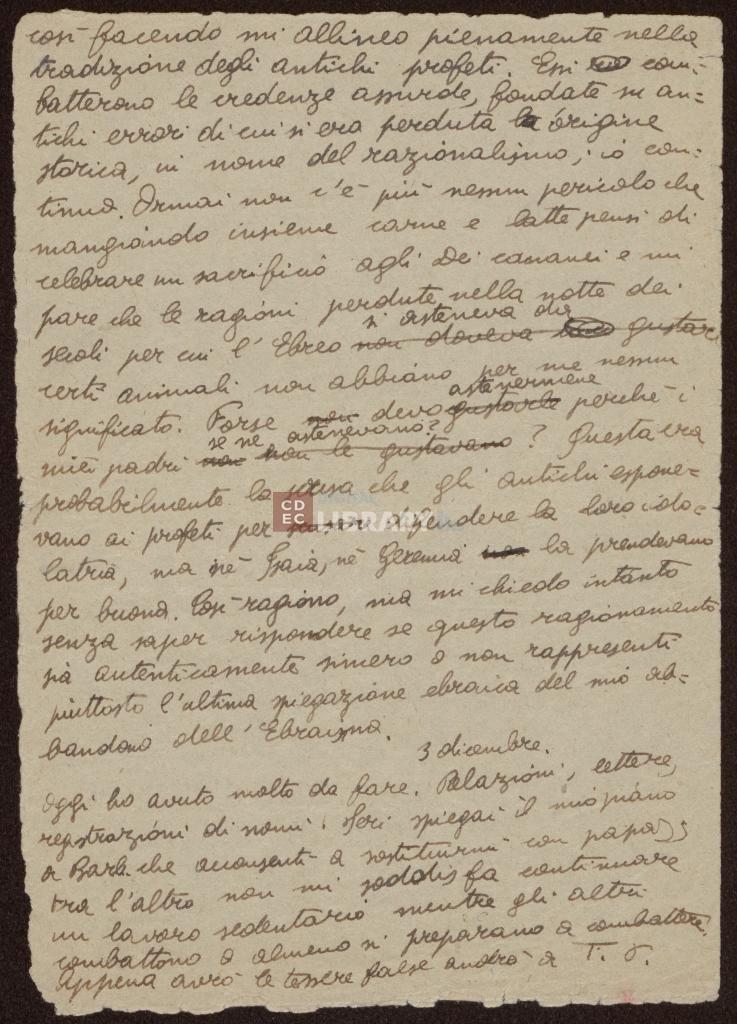 così facendo mi allineo pienamente nella
tradizione degli antichi profeti. Essi com=
batterono le credenze assurde, fondate su an=
tichi errori di cui si era perduta la origine
storica, in nome del razionalismo; io con=
tinuo. Ormai non c'è più nessun pericolo che
mangiando insieme carne e latte pensi di
celebrare un sacrificio agli Dei cananei e mi
pare che le ragioni perdute nella notte dei
si asteneva da
secoli per cui l'Ebreo non doveva gustare
certi animali non abbiano per me nessun
astenermene
significato. Forse non devo gustarle perché i
se ne astenevano?
miei padri non non le gustavano? Questa era
probabilmente la scusa che gli antichi espone=
vano ai profeti per difendere la loro idola=
latria, ma nè Isaia, nè Geremia non la prendevano
per buona. Così ragiono, ma mi chiedo intanto
senza saper rispondere se questo ragionamento
sia autenticamente sincero o non rappresenti
piuttosto l'ultima spiegazione ebraica del mio ab=
bandono dell'Ebraismo.
3 dicembre.
Oggi ho avuto molto da fare. Relazioni, lettere,
registrazioni di nomi. Ieri spiegai il mio piano
a Barb che acconsentì a sostituirmi con papà;
tra l'altro non mi soddisfa continuare
un lavoro sedentario mentre gli altri
combattono o almeno si preparano a combattere.
Appena avrò le tessere false andrò a T. P.
CDEC LIBRARY